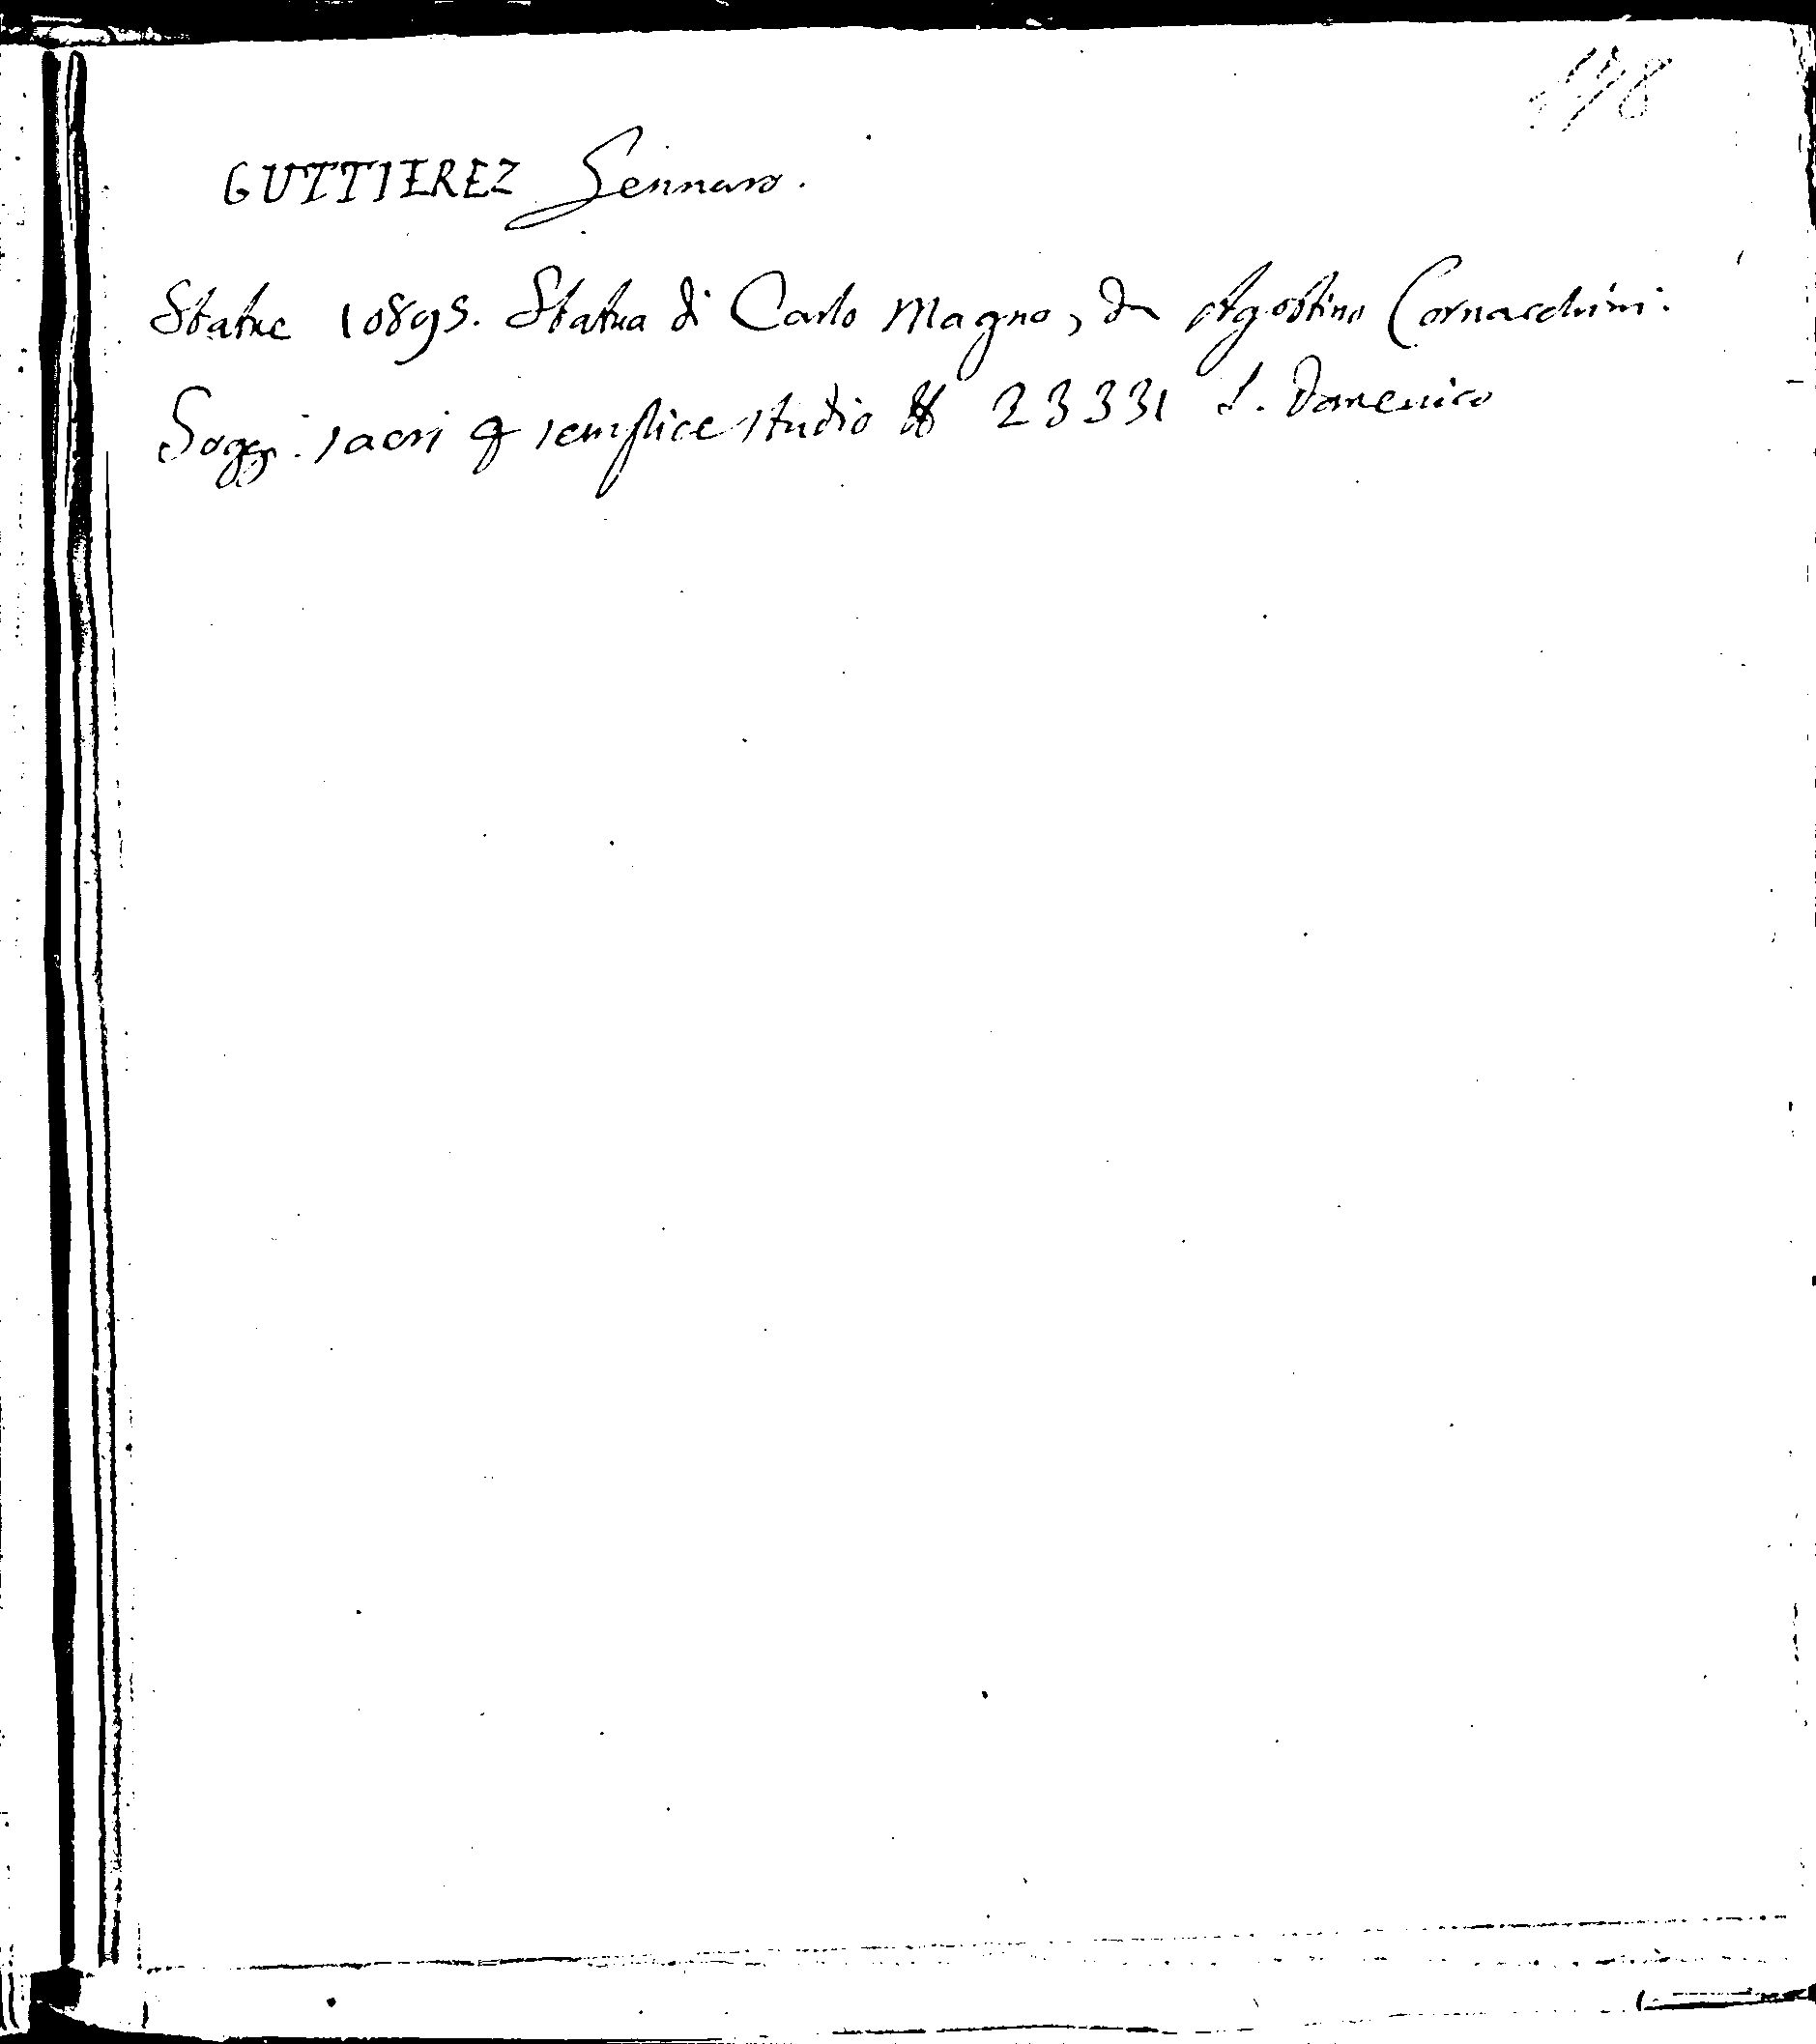 178
GUTTIEREZ Gennaro.
Statue 10895. Statua di Carlo Magno, da Agostino Cornacchini.
Sogg. sacri semplice studio 23331 S. Domenico